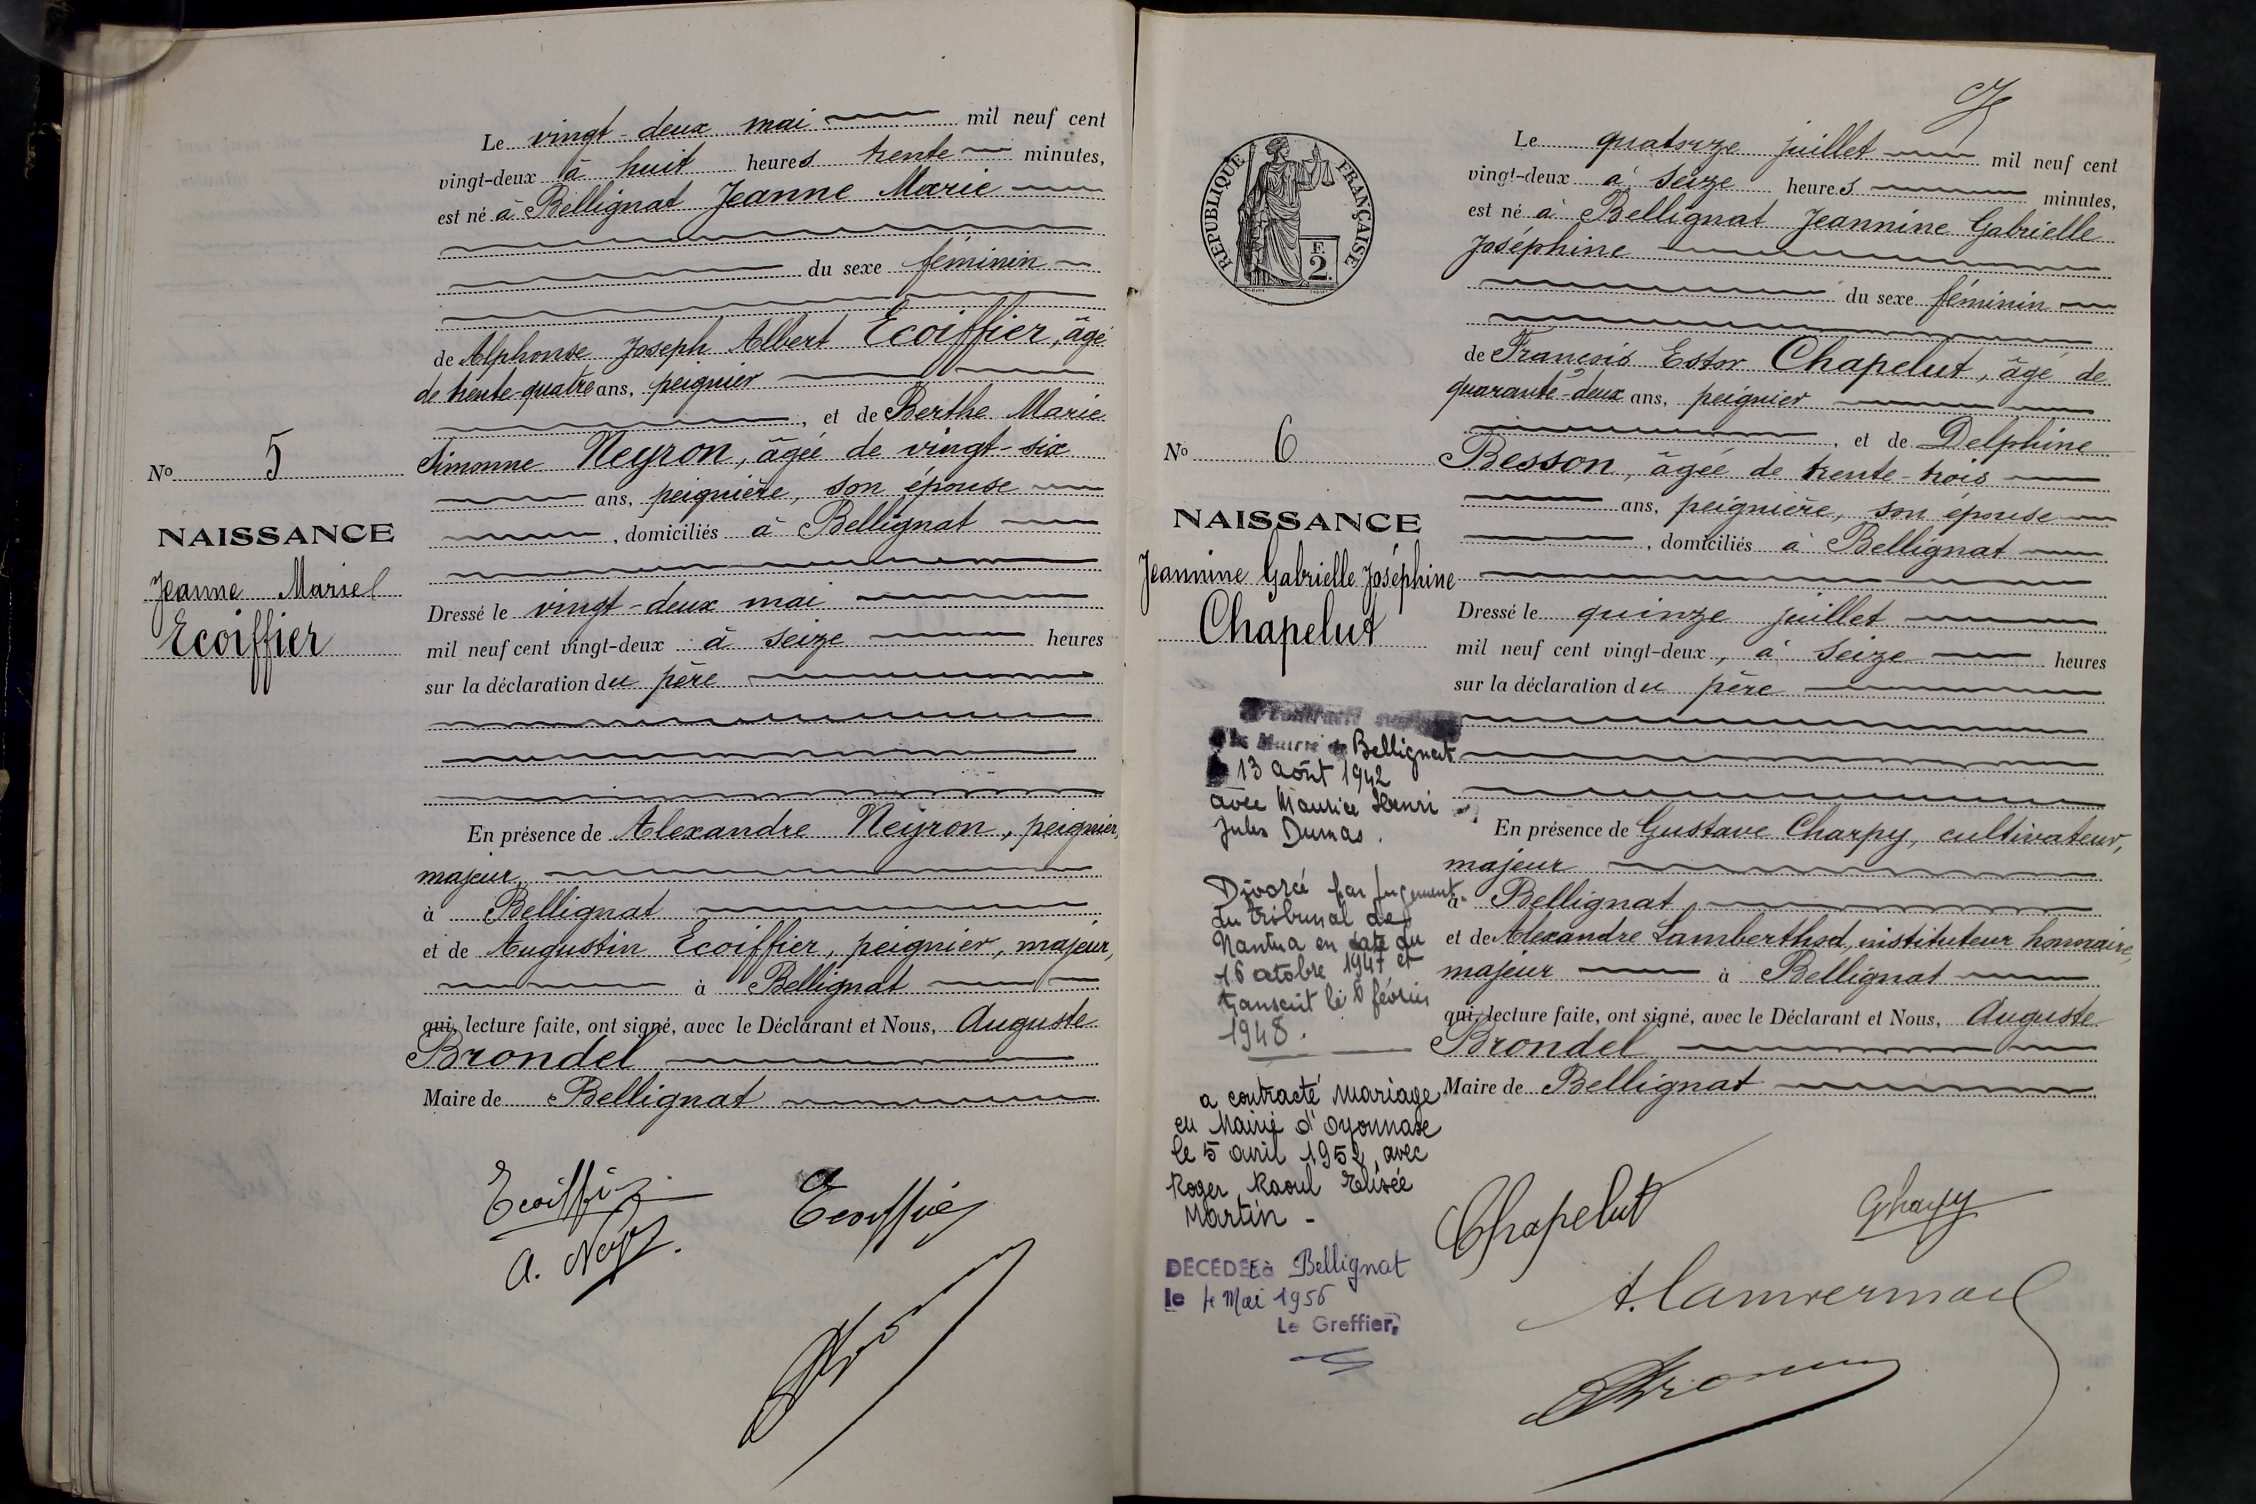 Le vingt-deux mai mil neuf cent
vingt-deux à huit heures trente minutes,
est né à Bellignat Jeanne Marie
du sexe féminin
de Alphonse Joseph Albert Ecoiffier, âgé
de trente-quatre ans, peignier
, et de Berthe Marie
Simonne Neyron, âgée de vingt-six
ans, peignière, son épouse
, domiciliés à Bellignat
Dressé le vingt-deux mai
mil neuf cent vingt-deux à seize heures
sur la déclaration du père
En présence de Alexandre Neyron, peignier,
majeur,
à Bellignat
et de Augustin Ecoiffier, peignier, majeur,
à Bellignat
qui, lecture faite, ont signé, avec le Déclarant et Nous, Auguste
Brondel
Maire de Bellignat
No 5
NAISSANCE
Jeanne Marie
Ecoiffier
Ecoiffier
A. Ney
Ecoiffier
7
REPUBLIQUE FRANÇAISE
F.
2
Le quatorze juillet mil neuf cent
vingt-deux à seize heures minutes,
est né à Bellignat Jeannine Gabrielle
Joséphine
du sexe féminin
de François Ester Chapelut, âgé de
quarante-deux ans, peignier
, et de Delphine
Besson, âgée de trente-trois
ans, peignière, son épouse
, domiciliés à Bellignat
Dressé le quinze juillet
mil neuf cent vingt-deux, à seize heures
sur la déclaration du père
En présence de Gustave Charpy, cultivateur,
majeur
à Bellignat
et de Alexandre Lamberthod, instituteur honoraire,
majeur à Bellignat
qui, lecture faite, ont signé, avec le Déclarant et Nous, Auguste
Brondel
Maire de Bellignat
No 6
NAISSANCE
Jeannine Gabrielle Joséphine
Chapelut
a contracté mariage
à la Mairie de Bellignat
13 août 1942
avec Maurice Henri
Jules Dumas.
Divorcé par jugement
du tribunal de
Nantua en date du
16 octobre 1947 et
transcrit le 6 février
1948.
a contracté mariage
en Mairie d'Oyonnase
le 5 avril 1952, avec
Roger Raoul Elisée
Martin -
DECEDEE à Bellignat
le 4 Mai 1956
Le Greffier,
Chapelut
G Charpy